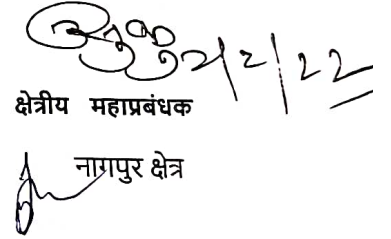 2/2/22
क्षेत्रीय महाप्रबंधक
नागपुर क्षेत्र